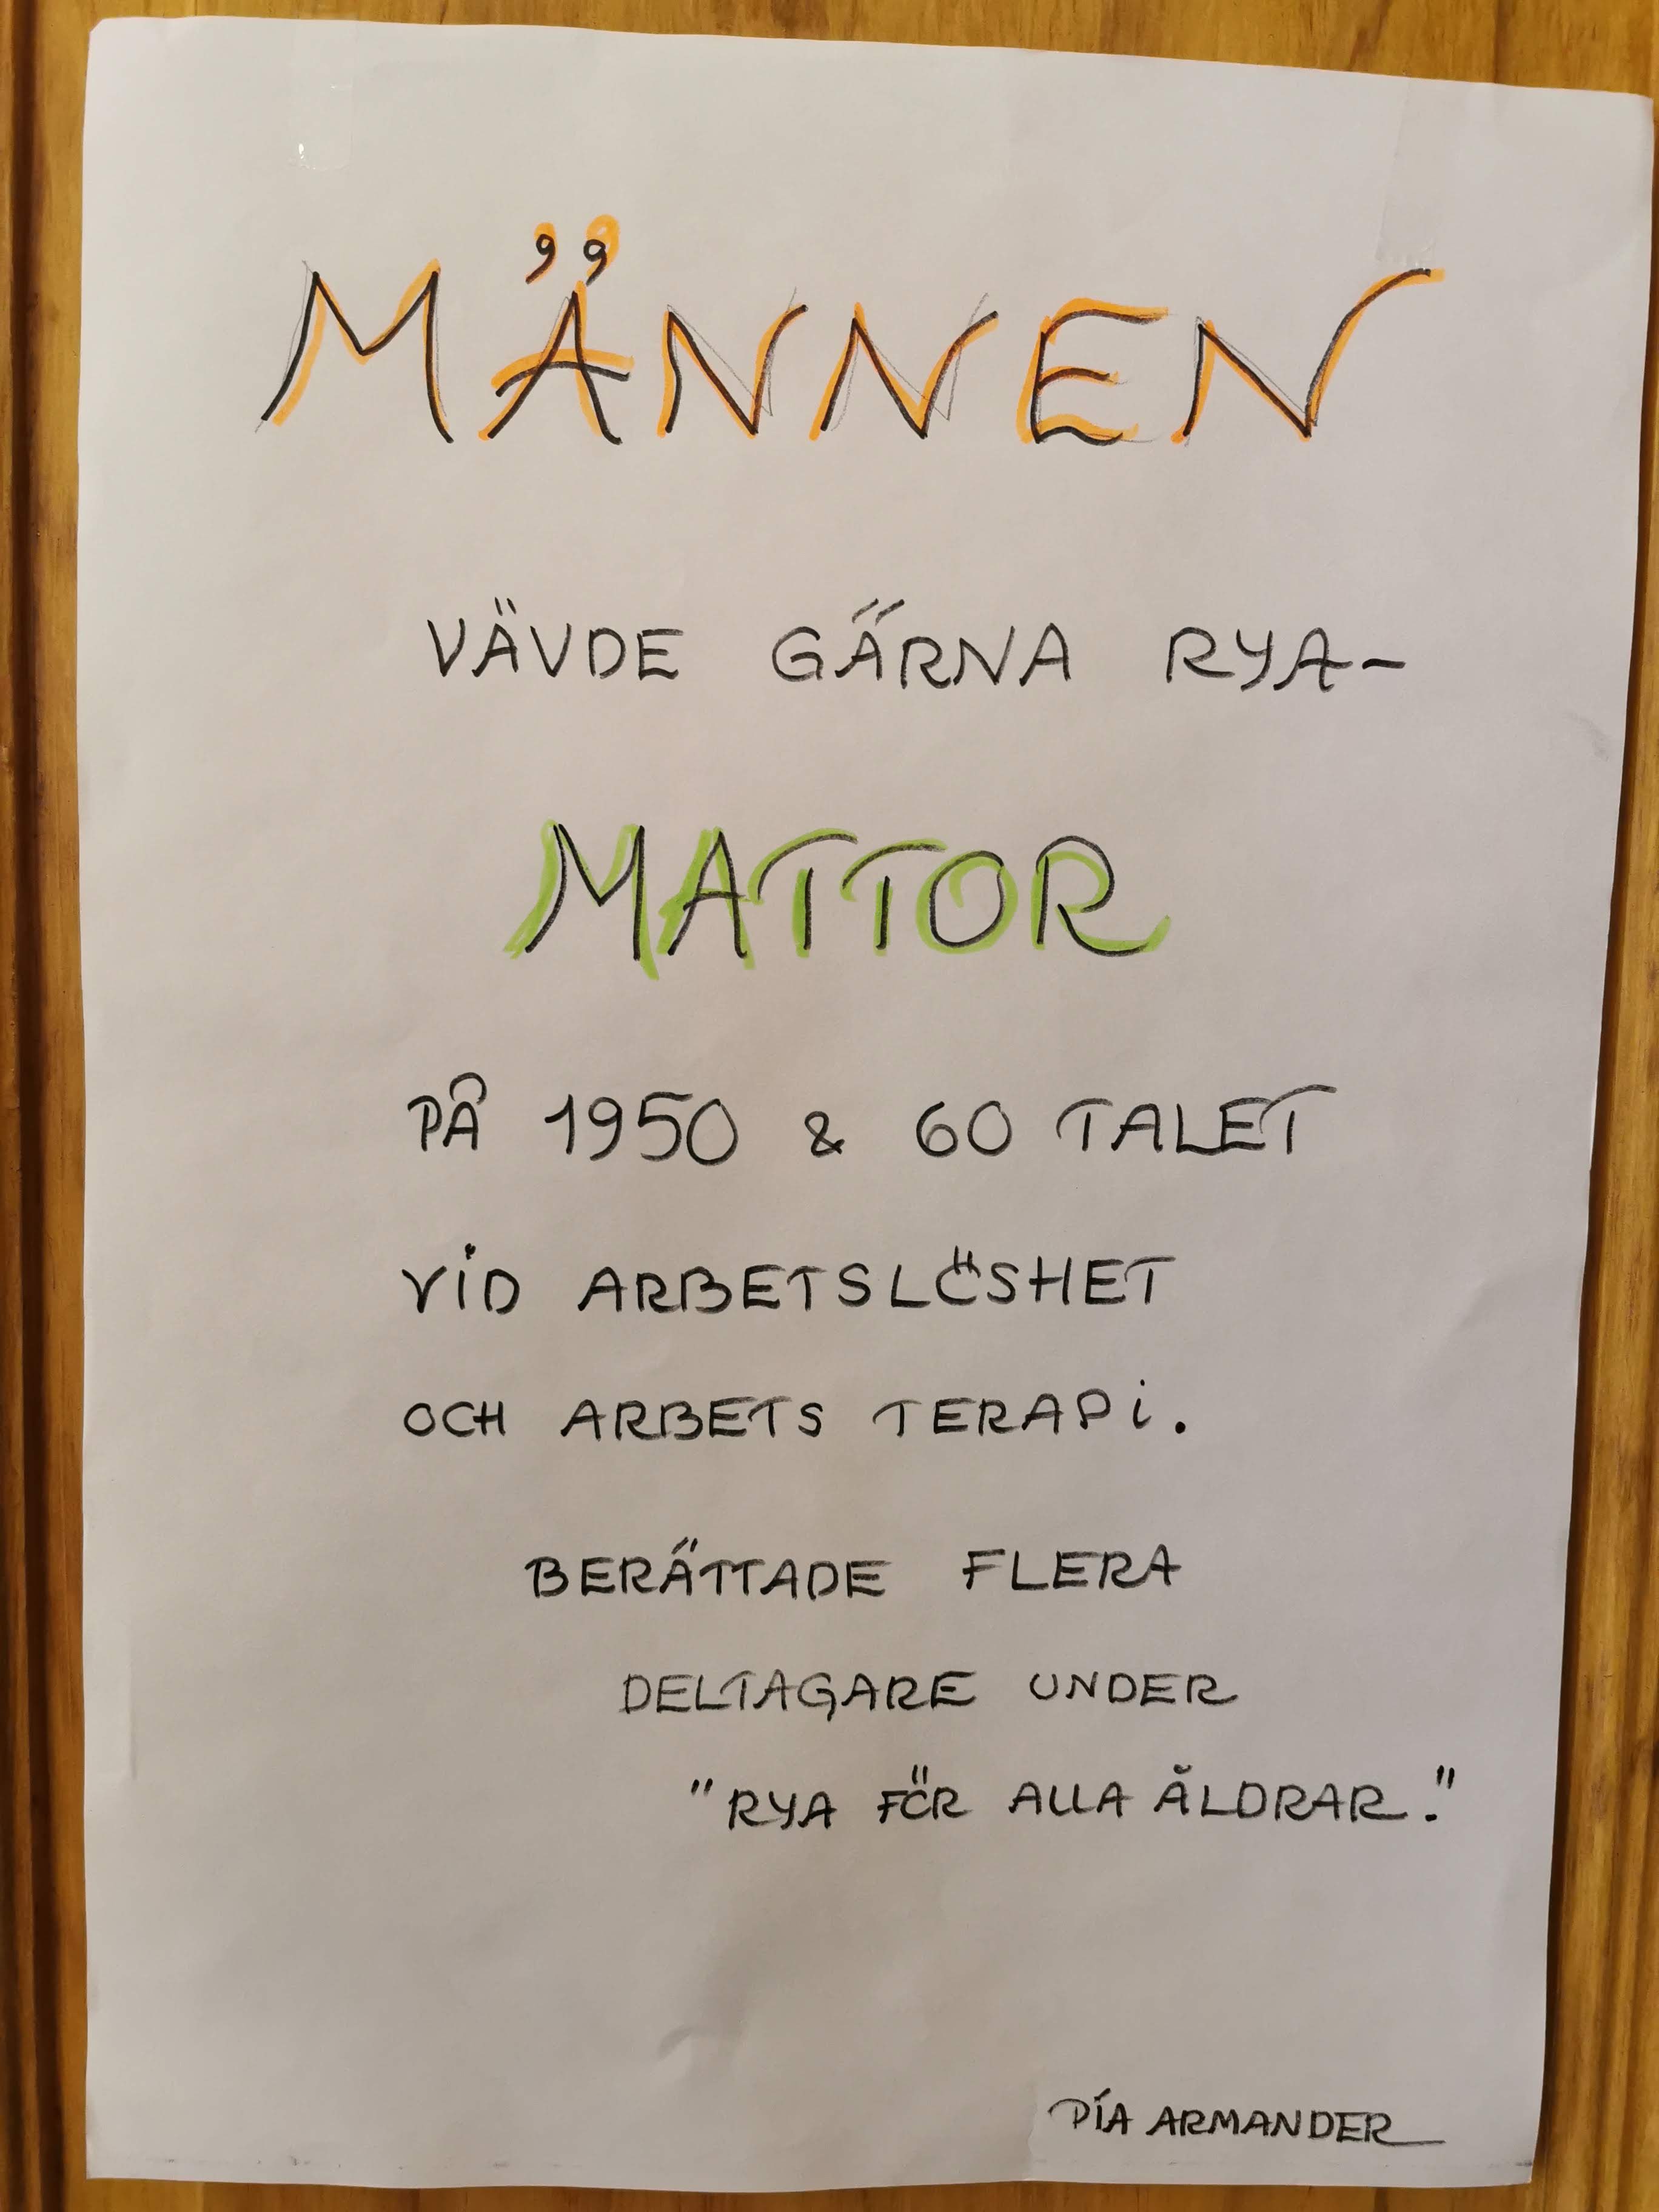 MÄNNEN
VÄVDE GÄRNA RYA-
MATTOR
PÅ 1950 & 60 TALET
ViD ARBETSLÖSHET
OCH ARBETS TERAPi.
BERÄTTADE FLERA
DELTAGARE UNDER
"RYA FÖR ALLA ÅLDRAR."
PÍA ARMANDER